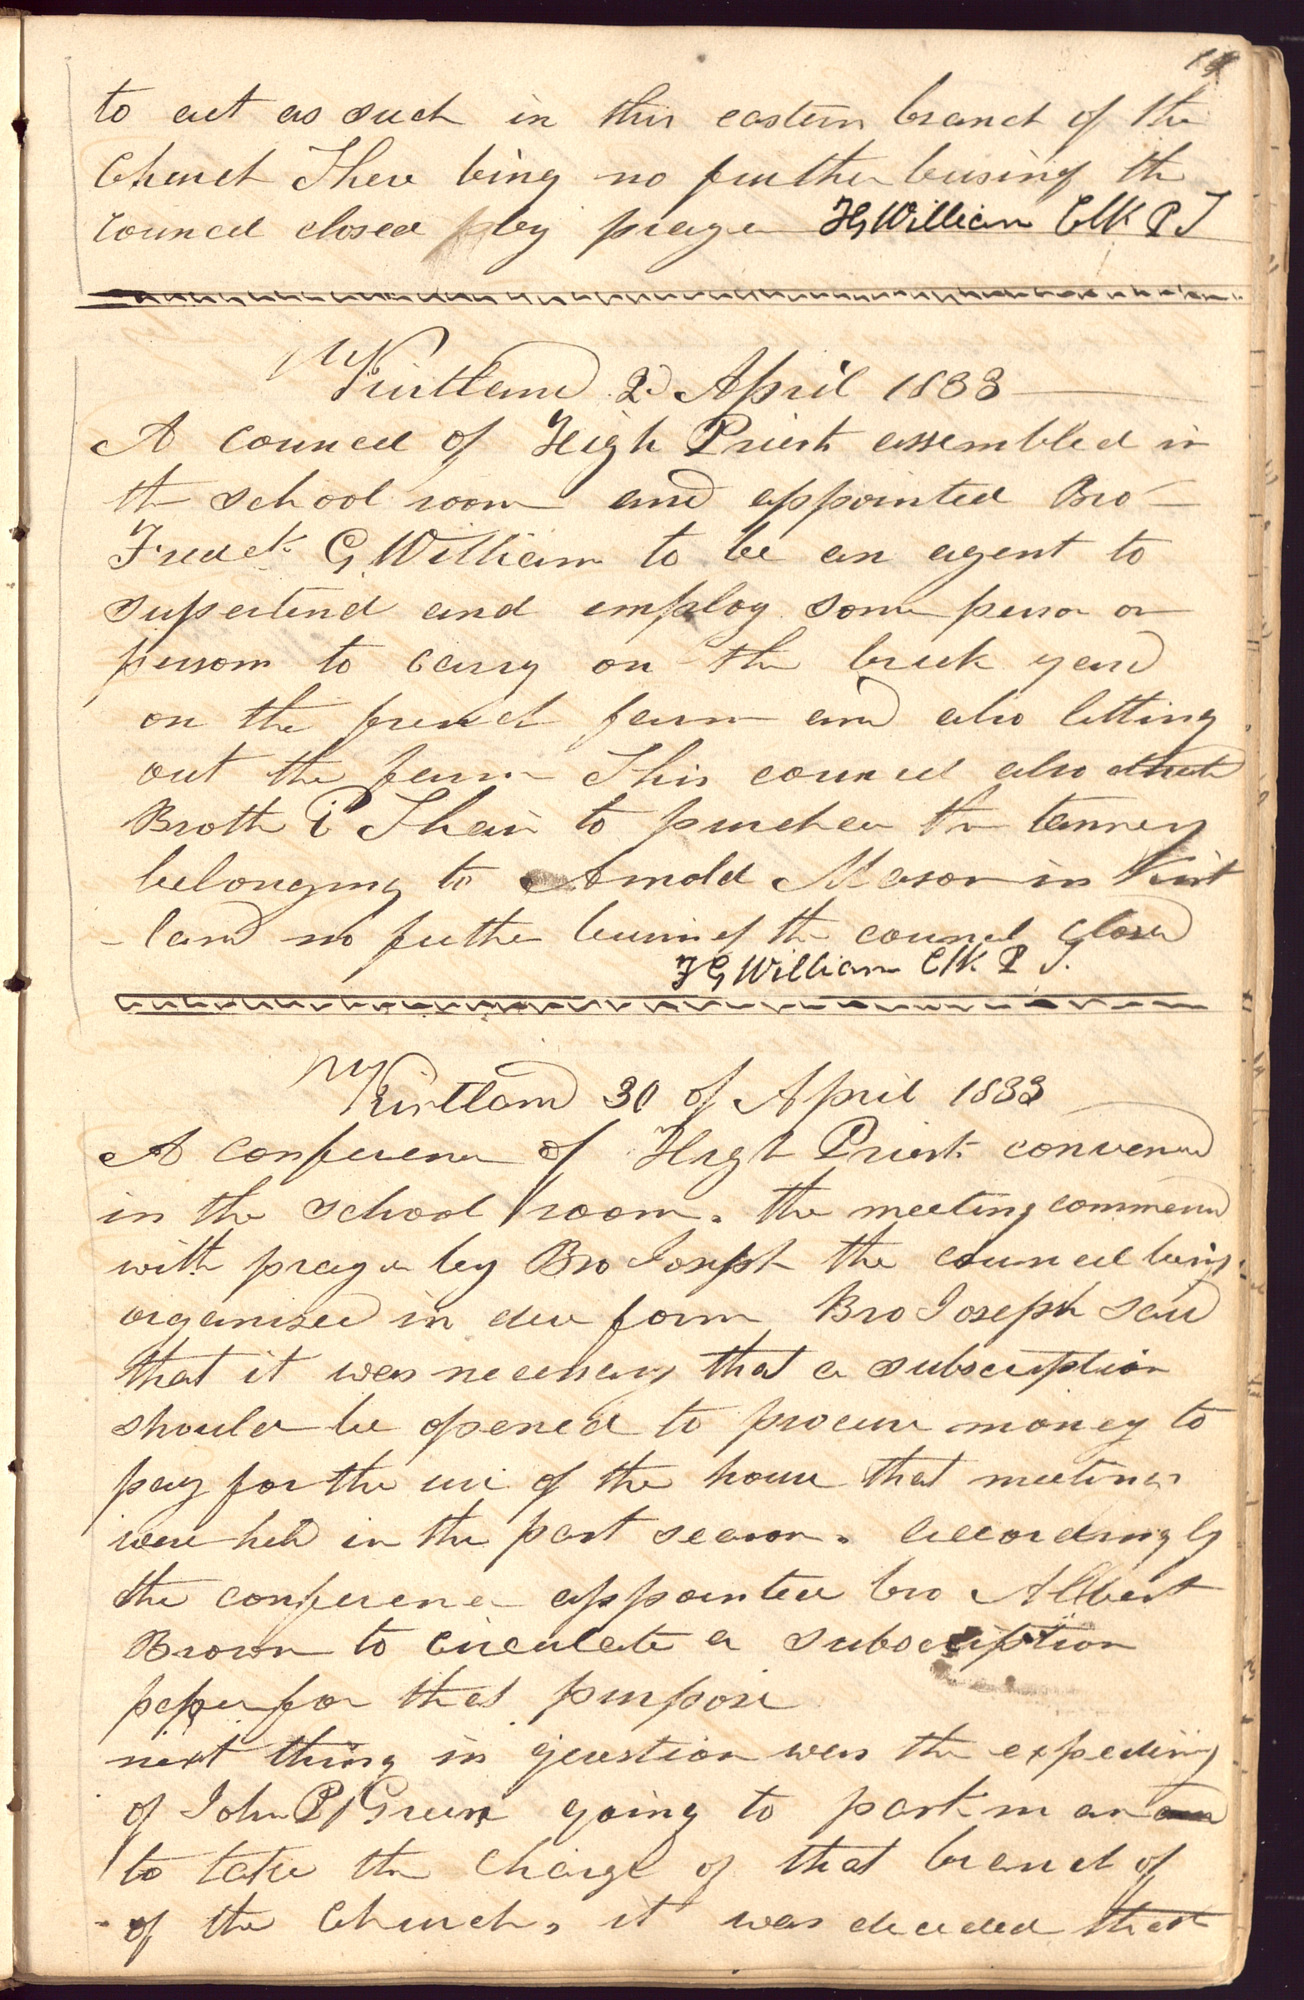 to act as such in this eastern branch of the
Church There being no further busines the
council closed by prayer FG William Clk P T
Kirtland 2d April 1833
A council of High Priests assembled in
the school room and appointed Bro
Fredck. G William to be an agent to
supertend and employ some person or
persons to carry on the brick yard
on the french farm and also letting
out the farm This council also
Broth Shair to purchase the tannery
belonging to Arnold Mason in Kirt
-land no futher business the council closed
FG William Clk P T.
Kirtland 30 of April 1833
A conference of High Priests convened
in the school room. the meeting commened
with prayer by Bro Joseph the council being
organised in due form Bro Joseph said
that it was necessary that a subscription
should be opened to procure money to
pay for the use of the house that meetings
were held in the past season. accordingly
the conference appointed bro Albert
Brown to circulate a subscription
paper for that purpose
next thing in question was the expediency
of John P Green going to parkman
to take the charge of that branch of
of the Church, it was decided that